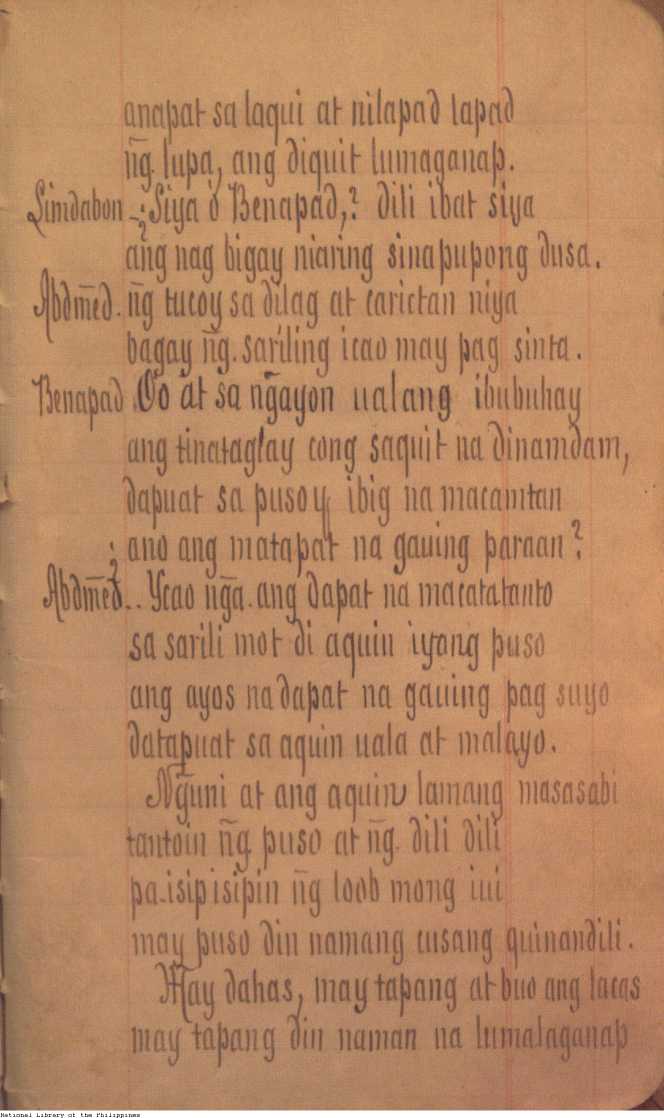 anapat sa laqui at nilapad lapad
ñg. lupa, ang diquit lumaganap.
Limdabon -¿Siya ó Benapad,? dili ibat siya
ang nag bigay niaring sinapupong dusa.
Abdm̃ed. ñg tucoy sa dilag at carictan niya
bagay ñg. sariling icao may pag sinta.
Benapad. Oo at sa ng̃ayon ualang ibubuhay
ang tinataglay cong saquit na dinamdam,
dapuat sa pusoy ibig na macamtan
¿ano ang matapat na gauing paraan?
Abdm̃ed.. Ycao ng̃a. ang dapat na macatatanto
sa sarili mot di aquin iyong puso
ang ayos na dapat na gauing pag suyo
datapuat sa aquin uala at malayo.
Ng̃uni at ang aquin lamang masasabi
tantoin ñg. puso at ñg. dili dili
pa-isipisipin ñg loob mong iui
may puso din namang cusang quinandili.
May dahas, may tapang at buo ang lacas
may tapang din naman na lumalaganap
National Library of the Philippines